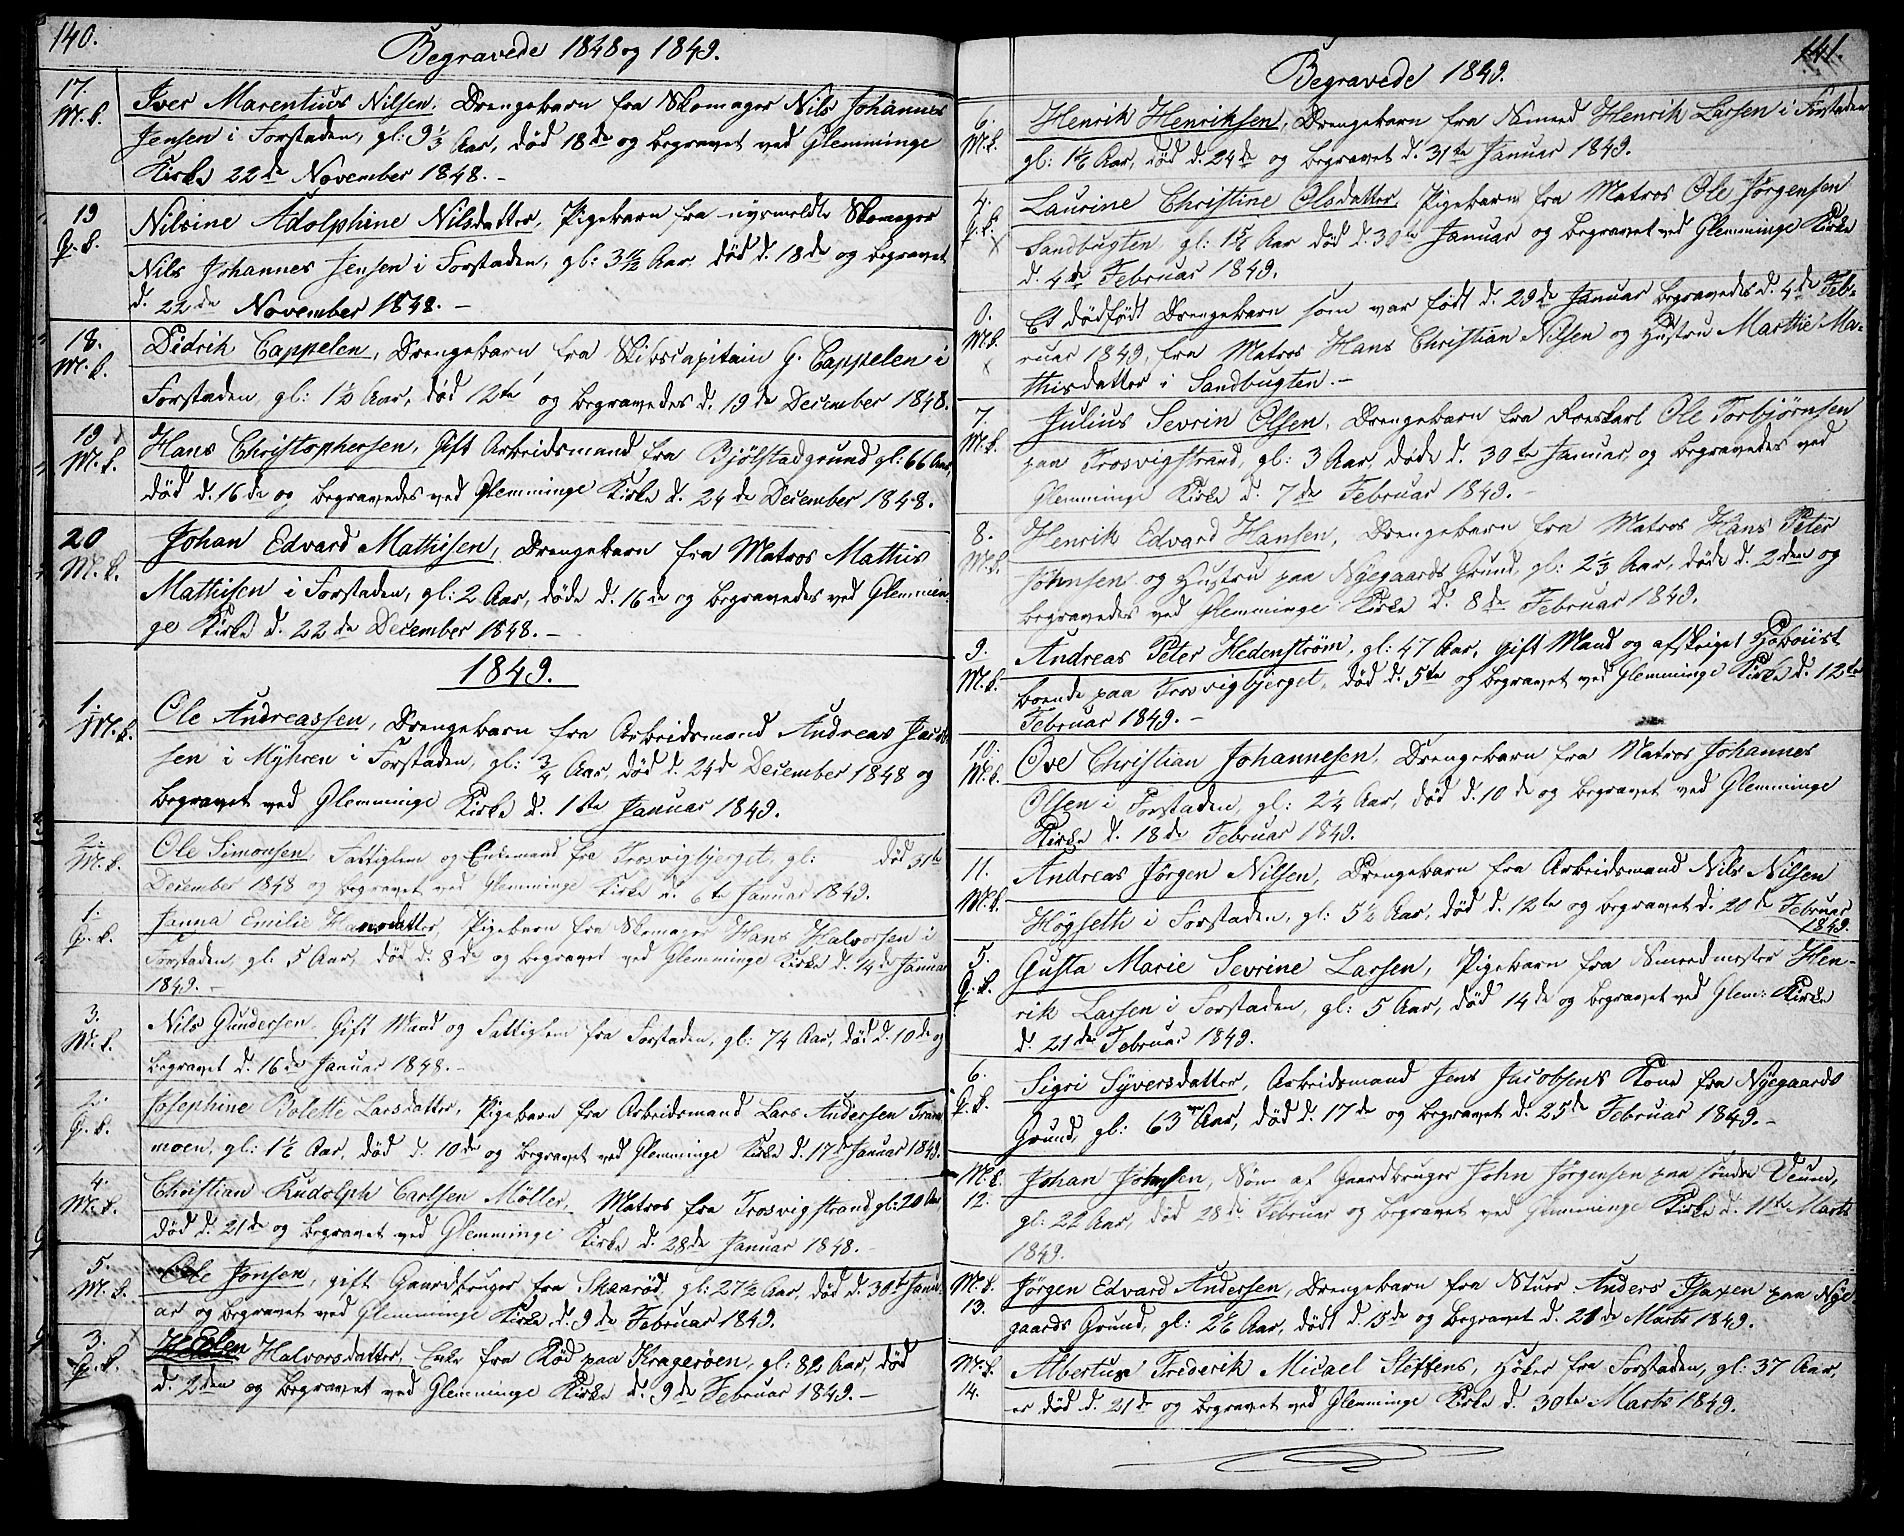 140.
Begravede 1848 og 1849.
17.
M. k.
Iver Marentius Nilsen, Drengebarn fra Skomager Nils Johannes
Jensen i Forstaden, gl: 9 1/3 Aar, død 18de og begravet ved Glemminge
Kirke 22de November 1848. –
19
Q. k.
Nilsine Adolphine Nilsdatter, Pigebarn fra nysmeldte Skomager
Nils Johannes Jensen i Forstaden, gl: Aar, død d. 18de og begravet
d. 22de November 1848. –
18.
M. k.
Didrik Cappelen, Drengebarn fra Skibscapitain G. Cappelen i
Forstaden gl: 1½ Aar, død 12te og begravedes d. 19de December 1848.
19
M. k.
Hans Christophersen, Gift Arbeidsmand fra Bjölstadgrund gl: 66 Aar,
død d. 16de og begravedes ved Glemminge Kirke d. 24de December 1848.
20
M. k.
Johan Edvard Mathisen, Drengebarn fra Matros Mathis
Mathisen i Forstaden, gl: 2 Aar, døde d. 16de og begravedes ved Glemmin-
ge Kirke d. 22de December 1848. –
1849.
1.
M. k.
Ole Andreassen, Drengebarn fra Arbeidsmand Andreas Jacob-
sen i Myhren i Forstaden, gl: 3/4 Aar, død d. 24de December 1848 og
begravet ved Glemminge Kirke d. 1ste Januar 1849.
2.
M. k.
Ole Simonsen, Fattiglem og Enkemand fra Trosvigbjerget, gl: død 31te
December 1848 og begravet ved Glemminge Kirke d. 6te Januar 1849.
1.
Q. k.
Janna Emilie Hansdatter, Pigebarn fra Skomager Hans Halvorsen i
Forstaden, gl: 5 Aar, død d. 8de og begravet ved Glemminge Kirke d. 14de Januar
1849. –
3.
M. k.
Nils Gundersen, Gift Mand og Fattiglem fra Forstaden, gl: 74 Aar, død d. 10de og
begravet d. 16de Januar 1848. –
2.
Q. k.
Josephine Bolette Larsdatter, Pigebarn fra Arbeidsmand Lars Andersen
moen, gl: 1½ Aar, død d. 10de og begravet ved Glemminge Kirke d. 17de Januar 1849.
4.
M. k.
Christian Rudolph Carlsen Möller, Matros fra Trosvigstrand gl: 20 Aar,
død d. 21de og begravet ved Glemminge Kirke d. 28de Januar 1848. –
5.
M. k.
Ole Jonsen, gift Gaardbruger fra Skaarød, gl: 27½ Aar, død d. 30te Janu-
ar og begravet ved Glemminge Kirke d. 9de Februar 1849.
3.
Q. k.
Elen Halvorsdatter, Enke fra Rød paa Kragerøen, gl: 82 Aar, død
d. 2den og begravet ved Glemminge Kirke d. 9de Februar 1849. –
141.
Begravede 1849.
6.
M. k.
Henrik Henriksen, Drengebarn fra Henrik Larsen i Forstaden
gl: Aar, død d. 24de og begravet d. 31te Januar 1849.
4.
Q. k.
Laurine Christine Olsdatter, Pigebarn fra Matros Ole Jørgensen
Sandbugten, gl: Aar død d. 30te Januar og begravet ved Glemminge Kirke
d. 4de Februar 1849.
0.
M. k.
Et dødfødt Drengebarn som var født d. 29de Januar begravedes d. 4de Feb-
ruar 1849, fra Matros Hans Christian Nilsen og Hustru Marthe Ma-
thisdatter i Sandbugten. –
7.
M. k.
Julius Sevrin Olsen, Drengebarn fra Ole Torbjørnsen
paa Trosvigstrand, gl: 3 Aar, døde d. 30te Januar, og begravedes ved
Glemminge Kirke d. 7de Februar 1849. –
8.
M. k.
Henrik Edvard Hansen, Drengebarn fra Matros Hans Peter
Johnsen og Hustru paa Nyegaards Grund, gl: 2 1/3 Aar, døde d. 2den og
begravedes ved Glemminge Kirke d. 8de Februar 1849.
9.
M. k.
Andreas Peter Hedenstrøm, gl: 47 Aar, gift Mand og afskeiget Hoboist
boende paa Trosvigbjerget, død d. 5te og begravet ved Glemminge Kirke d. 12te
Februar 1849. –
10.
M. k.
Ove Christian Johannesen, Drengebarn fra Matros Johannes
Olsen i Forstaden, gl: 2¼ Aar, død d. 10de og begravet ved Glemminge
Kirke d. 18de Februar 1849.
11.
M. k.
Andreas Jörgen Nilsen, Drengebarn fra Arbeidsmand Nils Nilsen
Höyseth i Forstaden, gl: 5½ Aar, død d. 12te og begravet d. 20de Februar
1849.
5.
Q. k.
Gusta Marie Sevrine Larsen, Pigebarn fra Hen-
rik Larsen i Forstaden, gl: 5 Aar, død 14de og begravet ved Glem: Kirke
d. 21de Februar 1849.
6.
Q. k.
Sigri Syversdatter, Arbeidsmand Jens Jacobsens Kone fra Nyegaards
Grund, gl: 63 Aar, død d. 17de og begravet d. 25de Februar 1849. –
M. k.
12.
Johan Johnsen, Søn af Gaardbruger John Jørgensen paa søndre Veum,
gl: 22 Aar, død 28de Februar og begravet ved Glemminge Kirke d. 11te Marts
1849.
M. k.
13.
Jörgen Edvard Andersen, Drengebarn fra Anders Isaxen paa Nye-
gaards Grund, gl: Aar, dødt d. 13de og begravet d. 21de Marts 1849.
M. k.
14.
Albertus Frederik Micael Steffens, Höker fra Forstaden, gl: 37 Aar,
er død d. 21de og begravet ved Glemminge Kirke d. 30te Marts 1849.